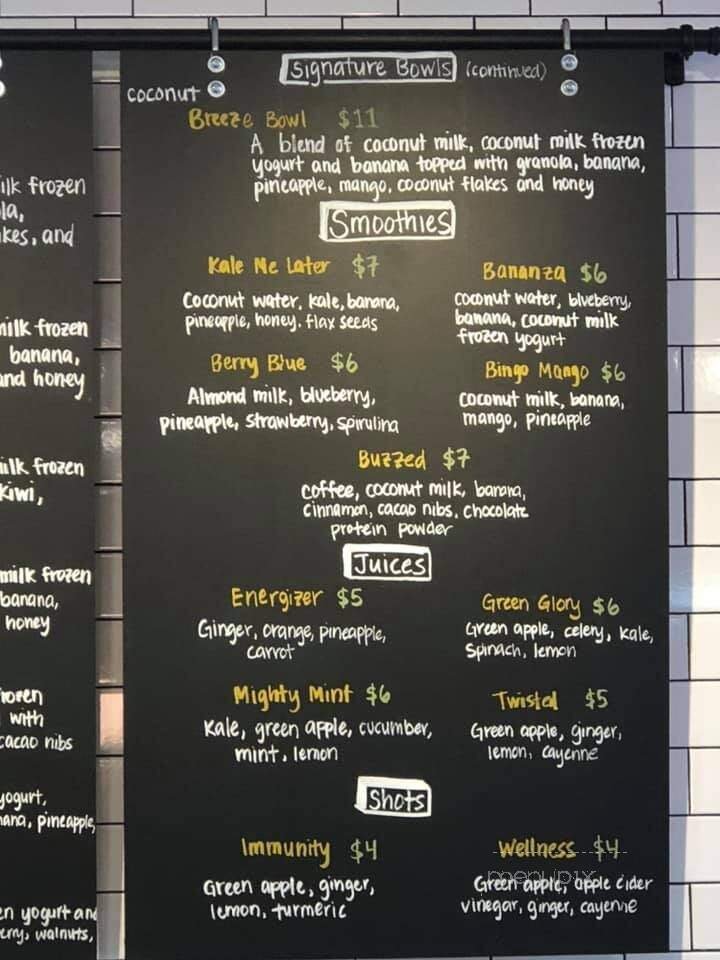 ilk frozen
la,
kes, and
milk frozen
banana,
and honey
ilk frozen
kiwi,
milk frozen
banana,
honey
rozen
with
cacao nibs
yogurt,
ana, pineapple,
en yogurt and
erry, walnuts,
Signature Bowls (continued)
coconut
Breeze Bowl $11
A blend of coconut milk, coconut milk frozen
yogurt and banana topped with granola, banana,
pineapple, mango, coconut flakes and honey
Smoothies
Kale Me Later $7
Coconut water, kale, banana,
pineapple, honey, flax seeds
Bananza $6
coconut water, blueberry,
banana, coconut milk
frozen yogurt
Berry Blue $6
Almond milk, blueberry,
pineapple, strawberry, spirulina
Bingo Mango $6
coconut milk, banana,
mango, pineapple
Buzzed $7
coffee, coconut milk, banana,
cinnamon, cacao nibs, chocolate
protein powder
Juices
Energizer $5
Ginger, orange, pineapple,
carrot
Green Glory $6
Green apple, celery, kale,
spinach, lemon
Mighty Mint $6
Kale, green apple, cucumber,
mint, lemon
Twisted $5
Green apple, ginger,
lemon, cayenne
Shots
Immunity $4
Green apple, ginger,
lemon, turmeric
Wellness $4
menupix
Green apple, apple cider
vinegar, ginger, cayenne